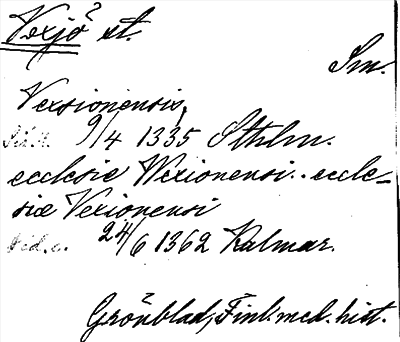 Vexjö st.
Sm.
Vexsionensis,
9/4 1335 Sthlm.
ecclesie Wexionensi. eccle-
siæ Vexionensi
24/6 1362 Kalmar.
Grönblad, Finl. med. hist.